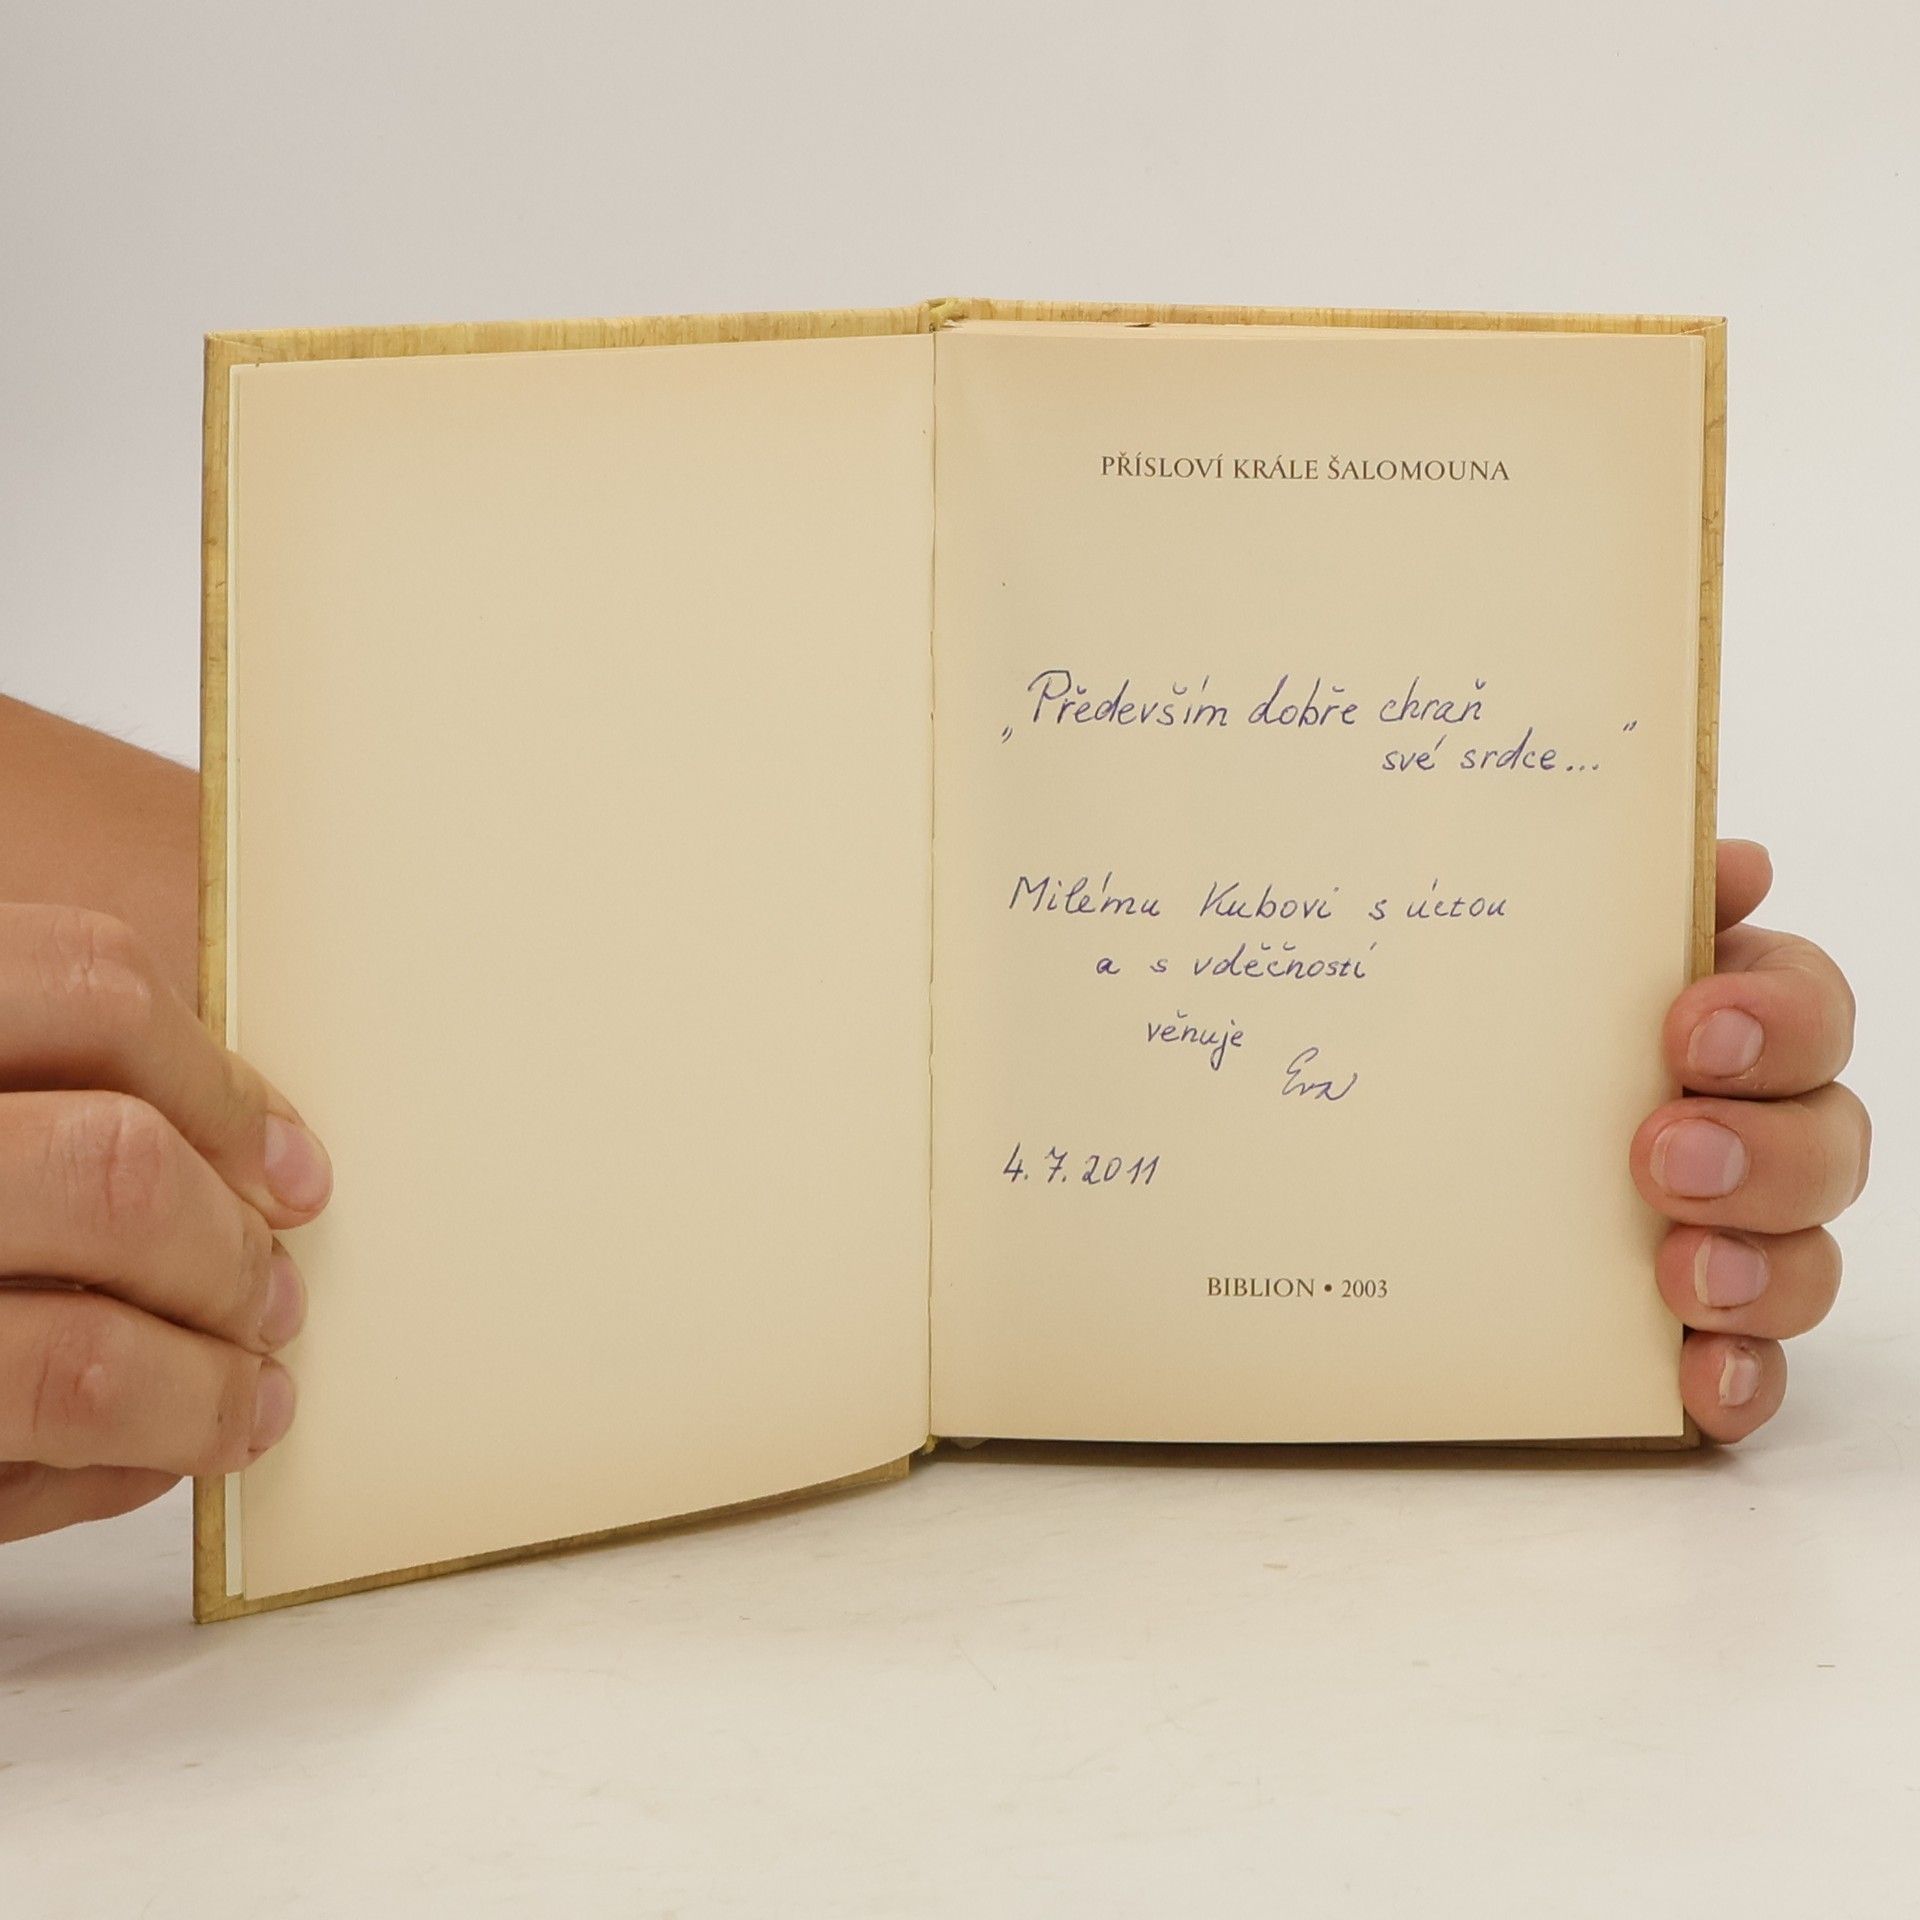 PŘÍSLOVÍ KRÁLE ŠALOMOUNA
„Především dobře chraň
své srdce..."
Milému Kubovi s úctou
a s vděčností
věnuje
Eva
4.7.2011
BIBLION • 2003